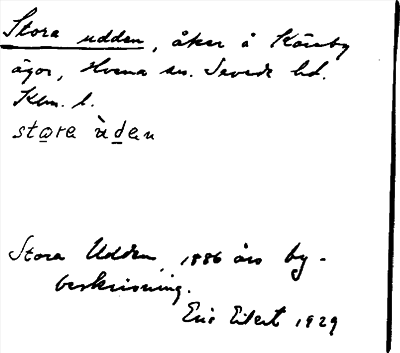 Stora udden, åker å Kärrby
ägor, Hvena sn. Sevede hd.
Klm. l.
stora ùden
Stora Udden, 1886 års by-
beskrivning.
Eric Eilert 1929